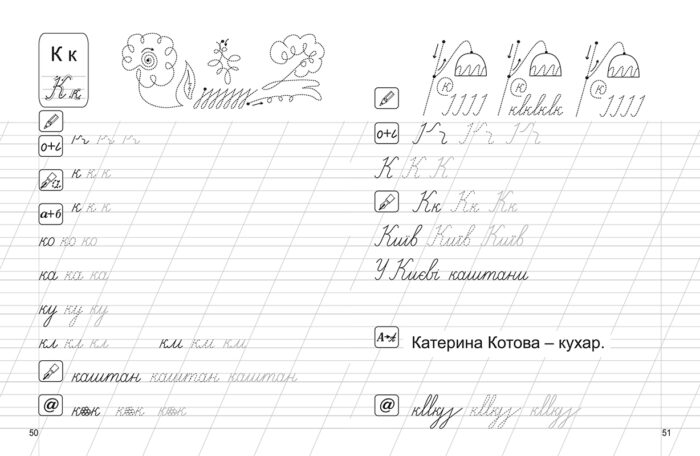 К к
К к
о+і
к к к
а+б
к к к
ко ко ко
ка ка ка
ку ку ку
кл кл кл км км км
каштан каштан каштан
@
50
к
к
к
кіхкіхкіхк
о+і
К К К
Кк Кк Кк
Київ Київ Київ
У Києві каштани
А→А
Катерина Котова – кухар.
@
51